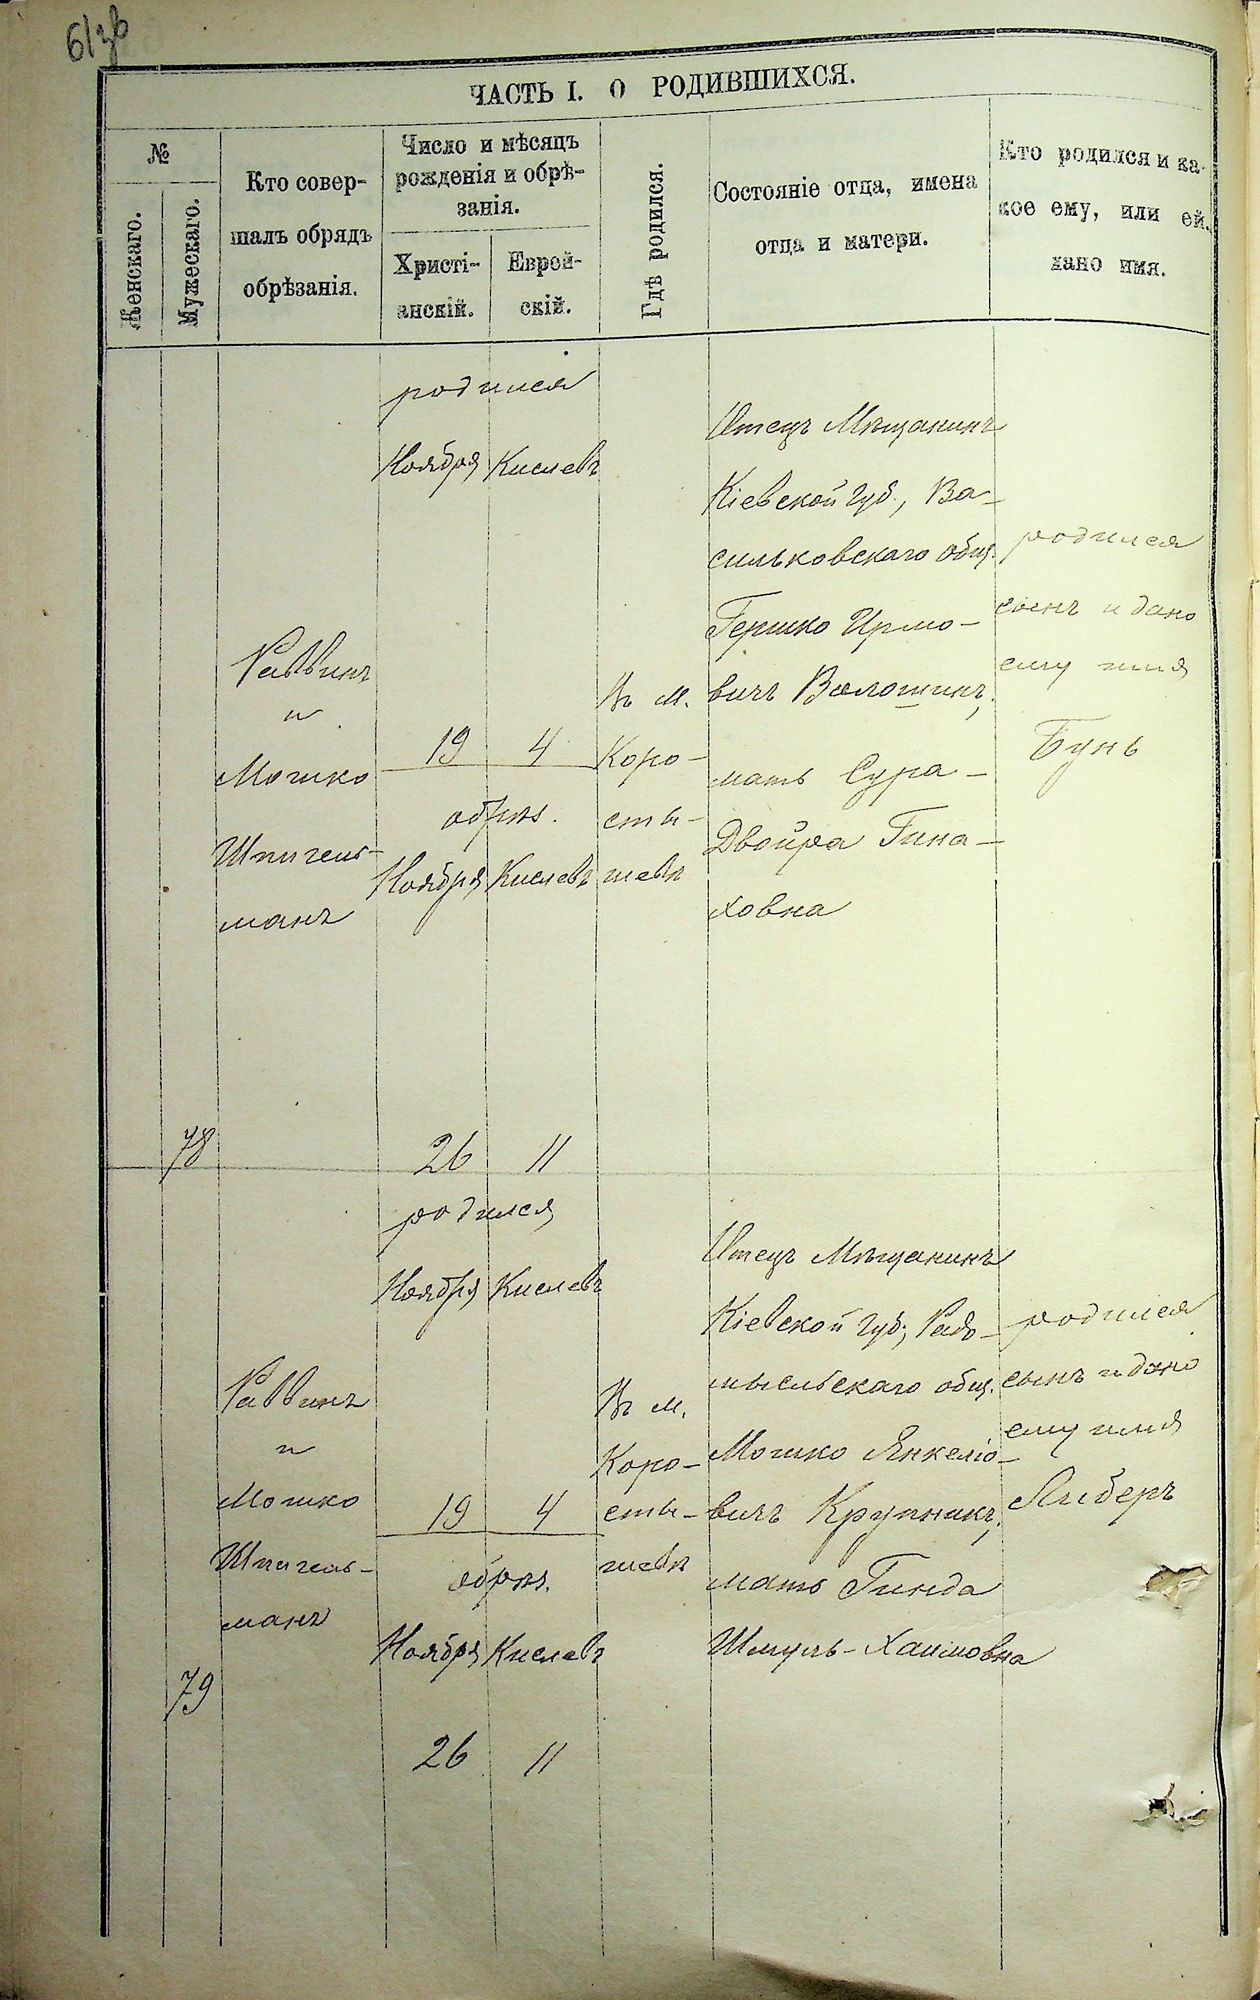 61зв
ЧАСТЬ I. О РОДИВШИХСЯ.
№
Женскаго.
Мужескаго.
Кто совер-
шалъ обрядъ
обрѣзанія.
Число и мѣсяцъ
рожденія и обрѣ-
занія.
Христі-
анскій.
Еврей-
скій.
Гдѣ родился.
Состояніе отца, имена
отца и матери.
Кто родился и ка-
кое ему, или ей,
дано имя.
78
Раввинъ
и
Мошко
Шпигель-
манъ
родился
Ноября Кислевъ
19 4
обрѣз.
Ноября Кислевъ
26 11
Въ м.
Коро-
сты-
шевѣ
Отецъ Мѣщанинъ
Кіевской губ., Ва-
сильковскаго общ.
Гершко Ирмо-
вичъ Волошинъ,
мать Сура-
Двойра Гина-
ховна
родился
сынъ и дано
ему имя
Бунь
79
Раввинъ
и
Мошко
Шпигель-
манъ
родился
Ноября Кислевъ
19 4
обрѣз.
Ноября Кислевъ
26 11
Въ м.
Коро-
сты-
шевѣ
Отецъ Мѣщанинъ
Кіевской губ., Радо-
мысльскаго общ.
Мошко Янкеліо-
вичъ Крупникъ,
мать Гинда
Шмуль-Хаимовна
родился
сынъ и дано
ему имя
Либеръ